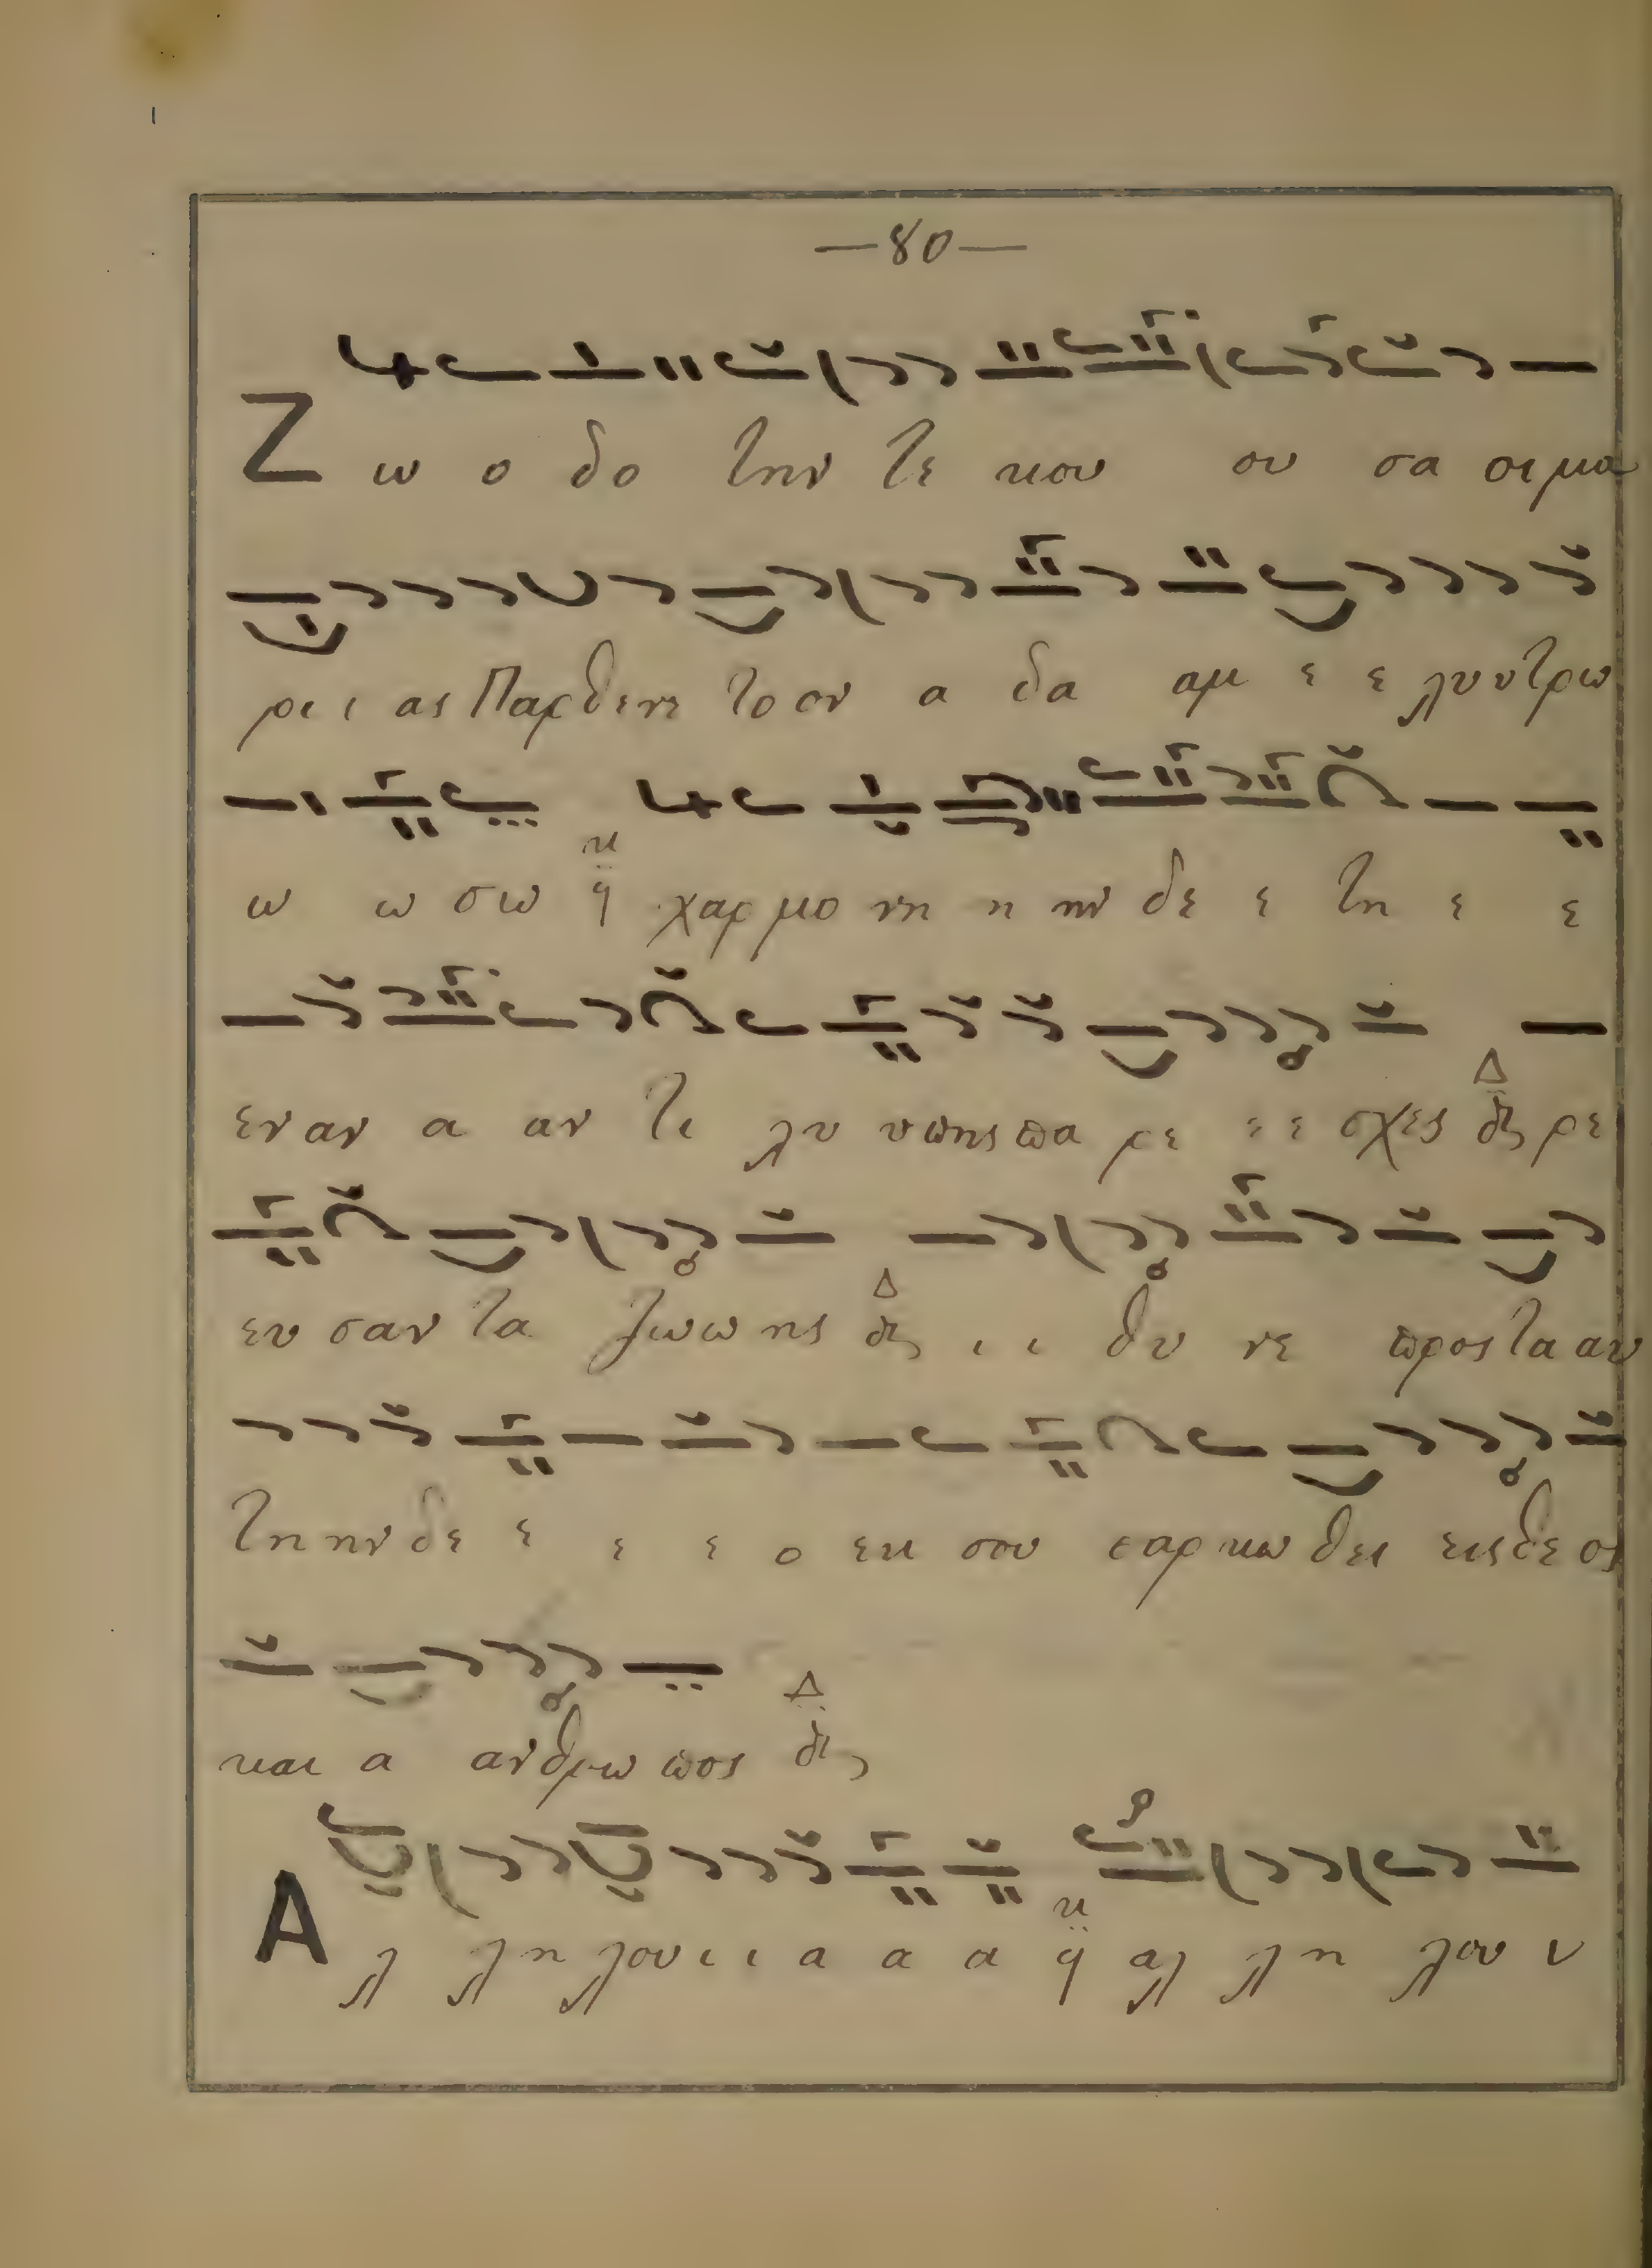 —80—
Ζ ω ο δο την τε κου ου σα σιμα
ρι ι ας Παρθενε το ον α δα αμ ε ε λυ υτρω
ω ω σω ϥ χαρ μο νη η ην δε ε τη ε ε
εν αν α αν τι λυ υπης πα ρε ε ε σχες Δ δι ρε
ευ σαν τα ζωω ης Δ δι ι ι θυ νε προς τα αυ
τη ην δε ε ε ε ο εκ σου σαρ κω θει εις θε ος
και α ανθρω πος Δ δι
Α λ λη λου ι ι α α α ϥ αλ λη λου ι